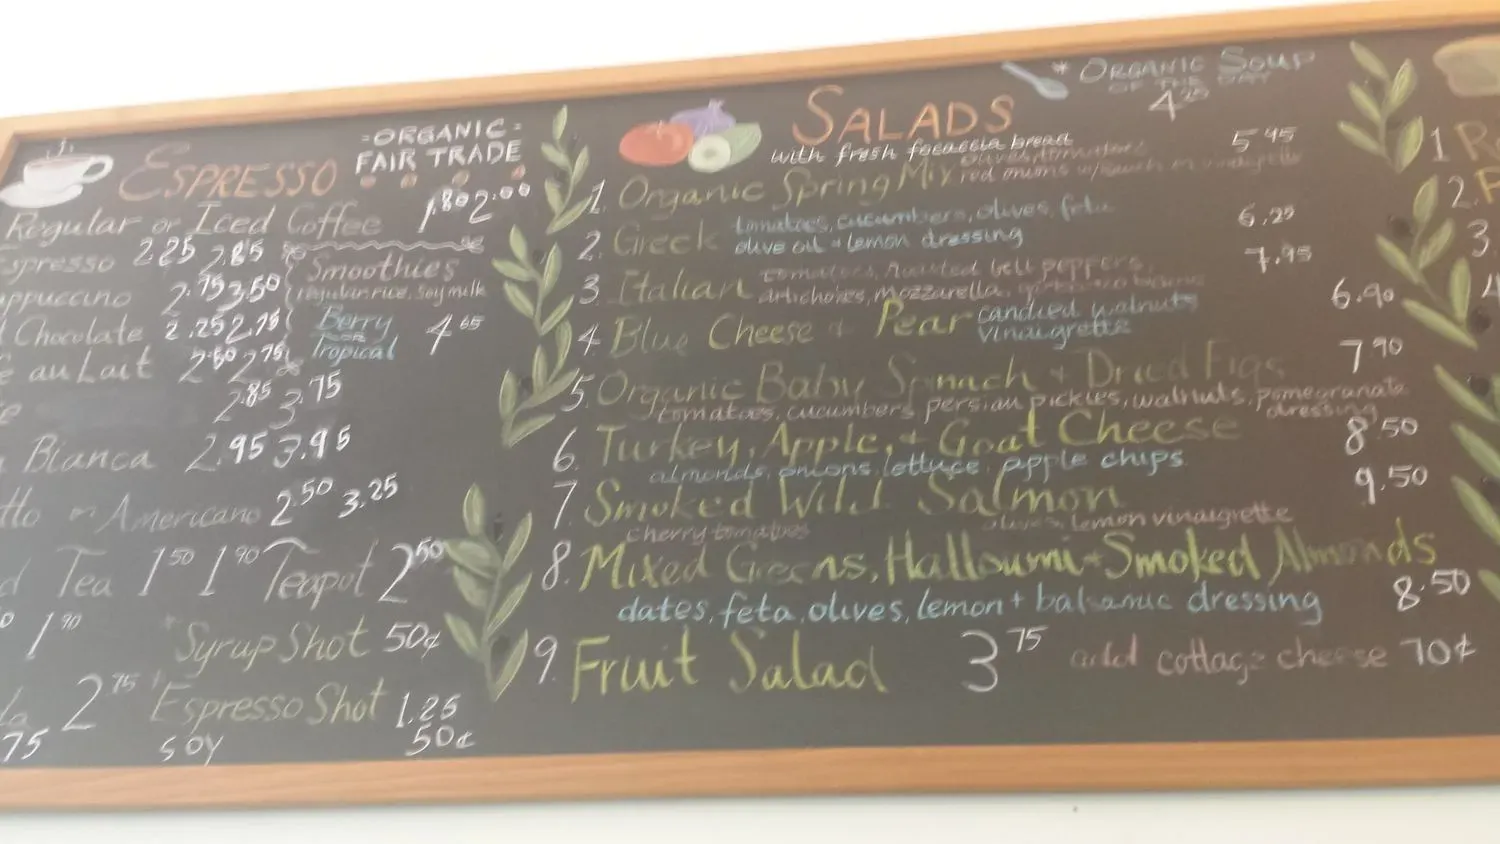 ESPRESSO
-ORGANIC-
FAIR TRADE
Regular or Iced Coffee 1.80 2.00
spresso 2.25 2.85
ppuccino 2.75 3.50
Chocolate 2.25 2.75
au Lait 2.50 2.75
2.85 3.75
Blanca 2.95 3.95
or Americano 2.50 3.25
Tea 1.50 1.90 Teapot 2.50
1.90
Syrup Shot 50¢
2.75 Espresso Shot 1.25
75 soy 50¢
Smoothies
regular, rice, soy milk
Berry
or
Tropical
4.65
SALADS
with fresh focaccia bread
* ORGANIC SOUP
OF THE DAY
4.25
1. Organic Spring Mix olives, tomatoes 5.45
red onions
2. Greek tomatoes, cucumbers, olives, feta 6.25
olive oil + lemon dressing
3. Italian tomatoes, roasted bell peppers, 7.95
artichokes, mozzarella,
4. Blue Cheese + Pear candied walnuts 6.90
vinaigrette
5. Organic Baby Spinach + Dried Figs 7.90
tomatoes, cucumbers persian pickles, walnuts, pomegranate
dressing
6. Turkey, Apple, + Goat Cheese 8.50
almonds, onions, lettuce, apple chips
7. Smoked Wild Salmon 9.50
cherry tomatoes olives, lemon vinaigrette
8. Mixed Greens, Halloumi + Smoked Almonds
dates, feta, olives, lemon + balsamic dressing 8.50
9. Fruit Salad 3.75 add cottage cheese 70¢
1
2.
3.
4